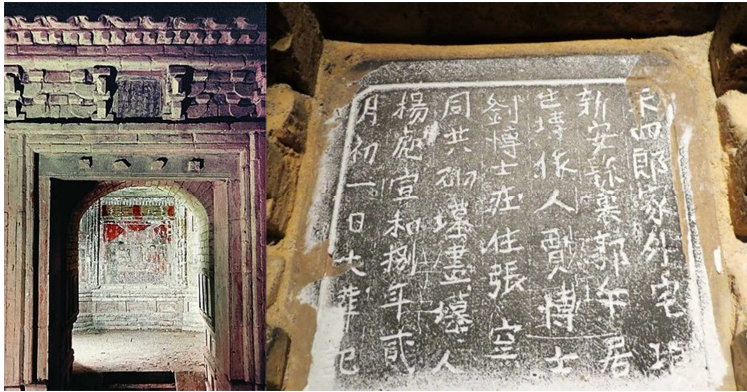 宋四郎家外宅坟
新安縣裏郭午居
住塼作人賈博士
劉博士莊住張窑
同共砌墓畫墓人
楊彪宣和捌年貳
月初一日大葬記